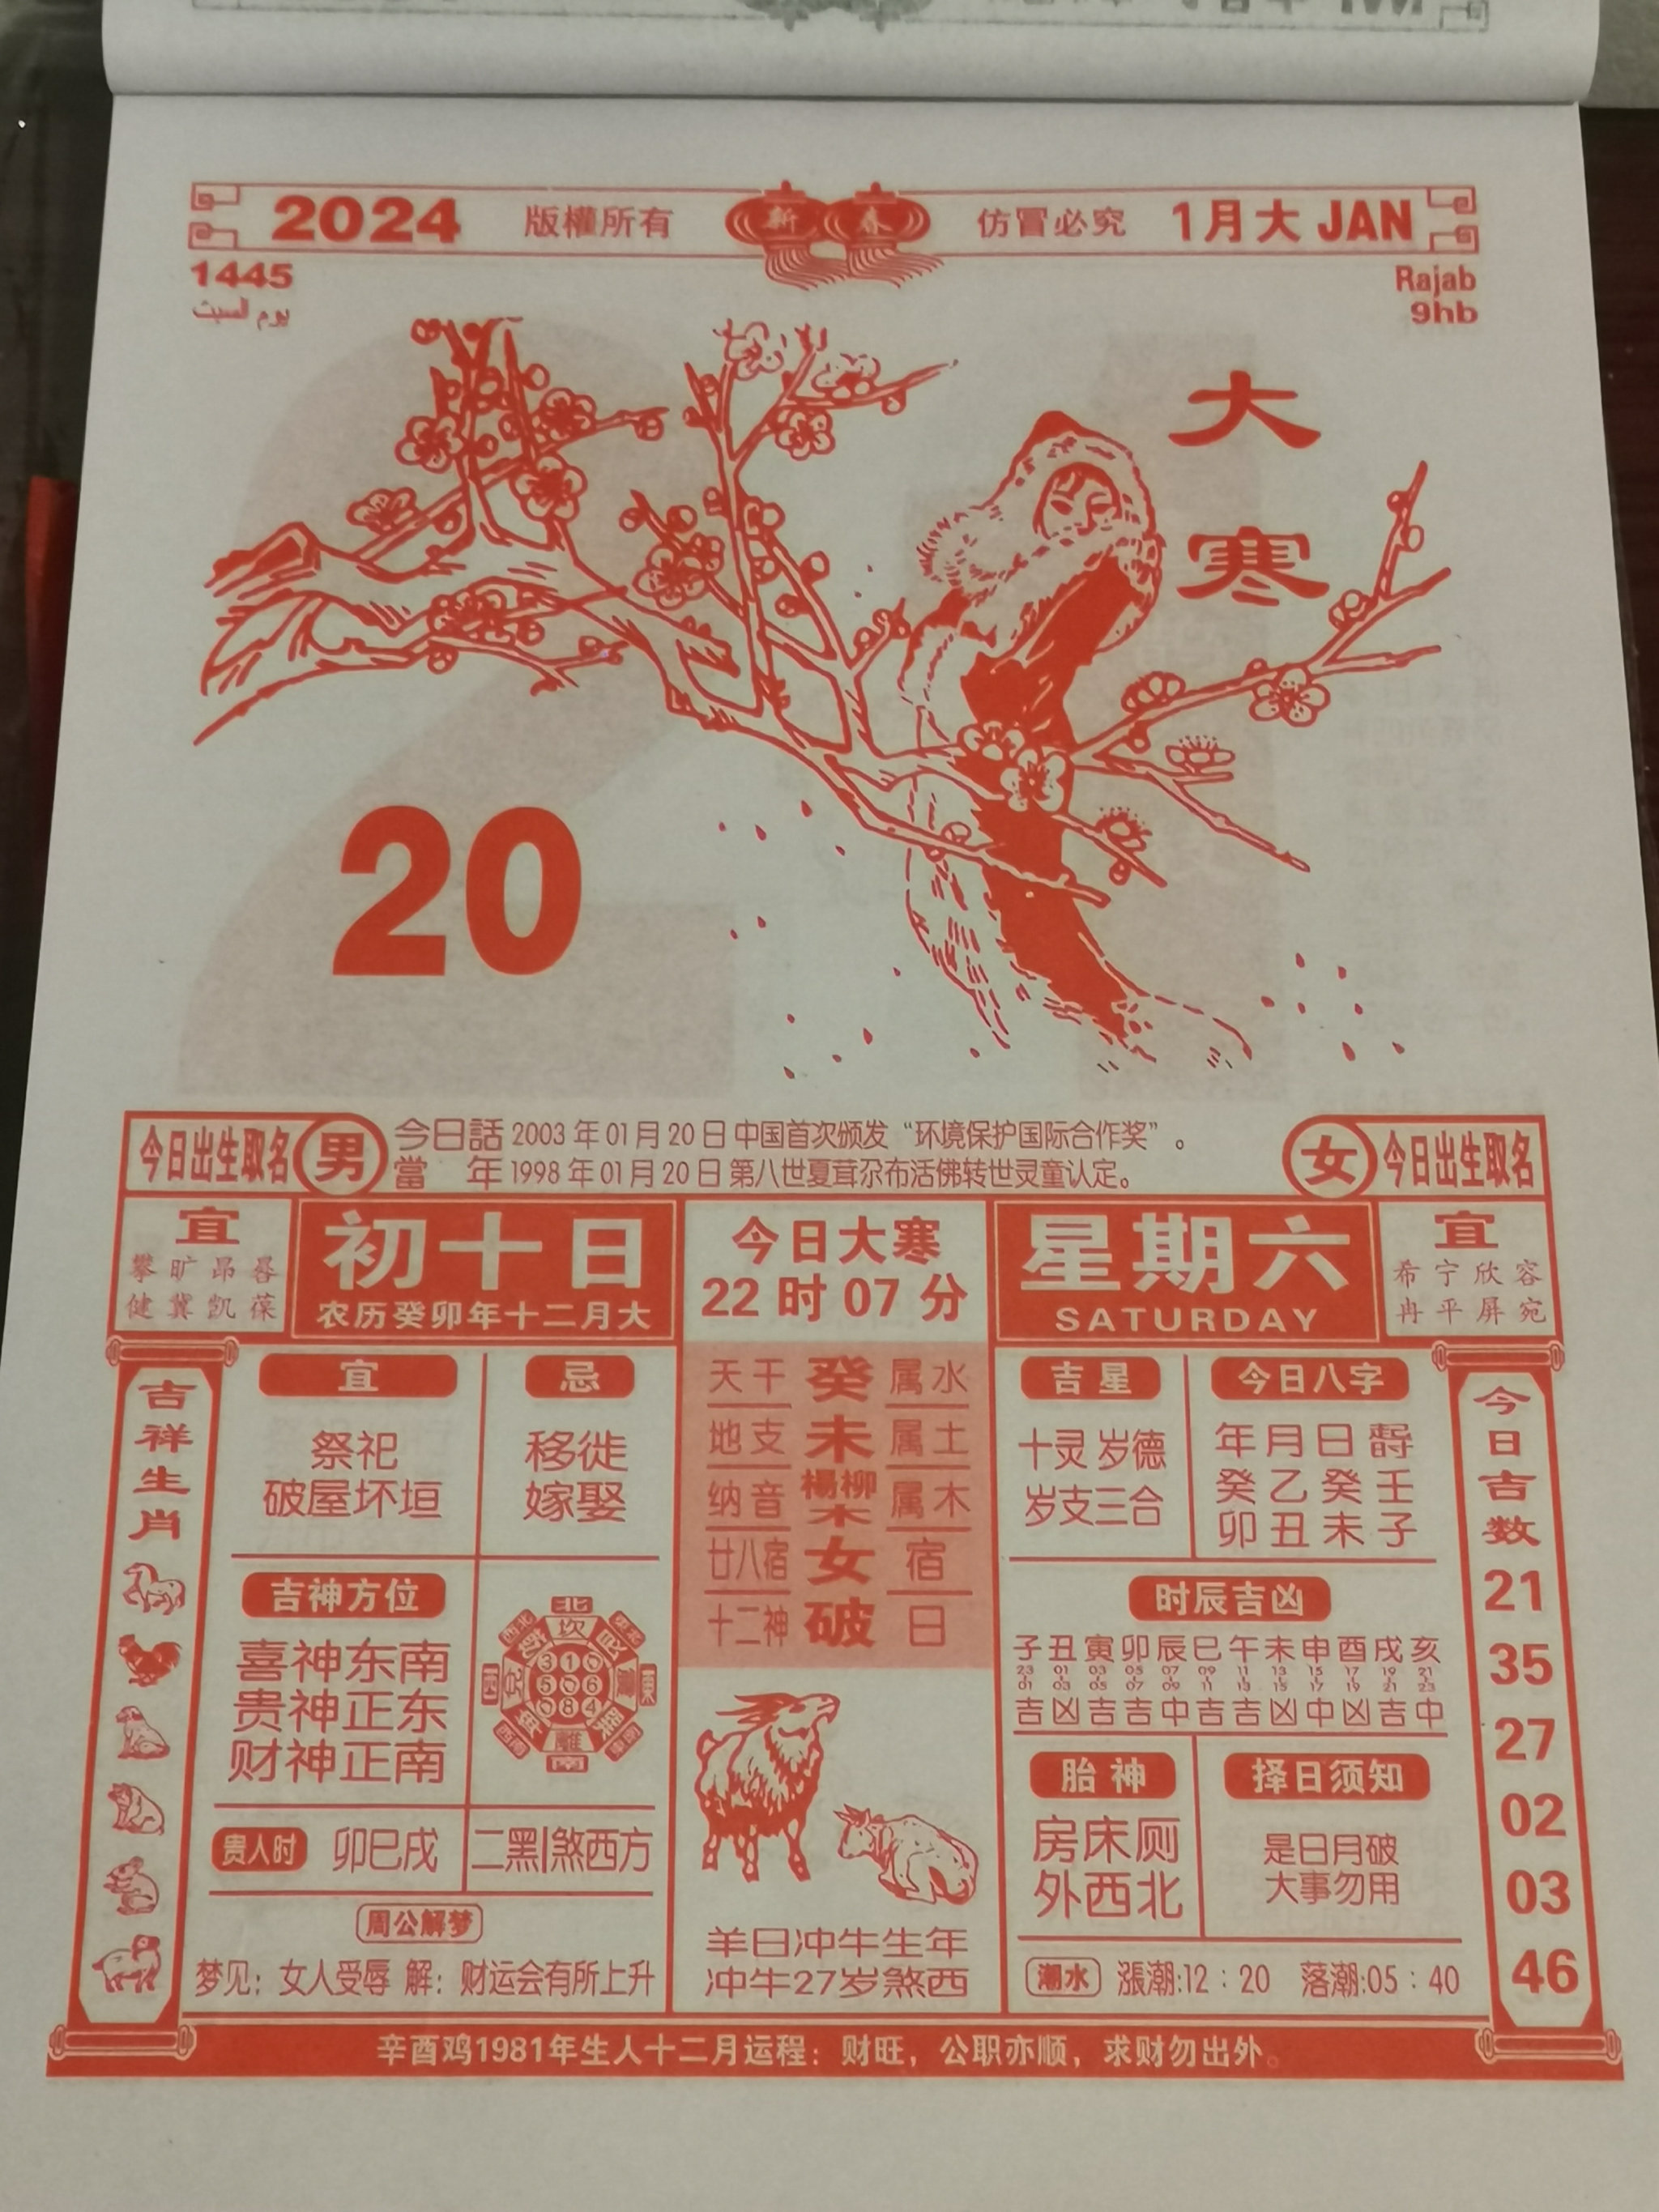 2024 版權所有 新春 仿冒必究 1月大 JAN
1445
Rajab
9hb
大
寒
20
今日出生取名 男
今日話 2003年01月20日中国首次颁发“环境保护国际合作奖”。
當年 1998年01月20日第八世夏茸尕布活佛转世灵童认定。
女 今日出生取名
宜
攀 旷 昂 晷
健 冀 凯 葆
初十日
农历癸卯年十二月大
今日大寒
22时07分
星期六
SATURDAY
宜
希 宁 欣 容
冉 平 屏 宛
吉祥生肖
宜
祭祀
破屋坏垣
忌
移徙
嫁娶
吉神方位
喜神东南
贵神正东
财神正南
北
坎
3 1
5 6
8 4
離
南
贵人时 卯巳戌
二黑 煞西方
周公解梦
梦见：女人受辱 解：财运会有所上升
天干 癸 属水
地支 未 属土
纳音 楊柳木 属木
廿八宿 女 宿
十二神 破 日
羊日冲牛生年
冲牛27岁煞西
吉星
十灵 岁德
岁支三合
今日八字
年 月 日
癸 乙 癸 壬
卯 丑 未 子
时辰吉凶
子 丑 寅 卯 辰 巳 午 未 申 酉 戌 亥
23 01 03 05 07 09 11 13 15 17 19 21
01 03 05 07 09 11 13 15 17 19 21 23
吉 凶 吉 吉 中 吉 吉 凶 中 凶 吉 中
胎神
房床厕
外西北
择日须知
是日月破
大事勿用
潮水 漲潮:12：20 落潮:05：40
今日吉数
21
35
27
02
03
46
辛酉鸡1981年生人十二月运程：财旺，公职亦顺，求财勿出外。